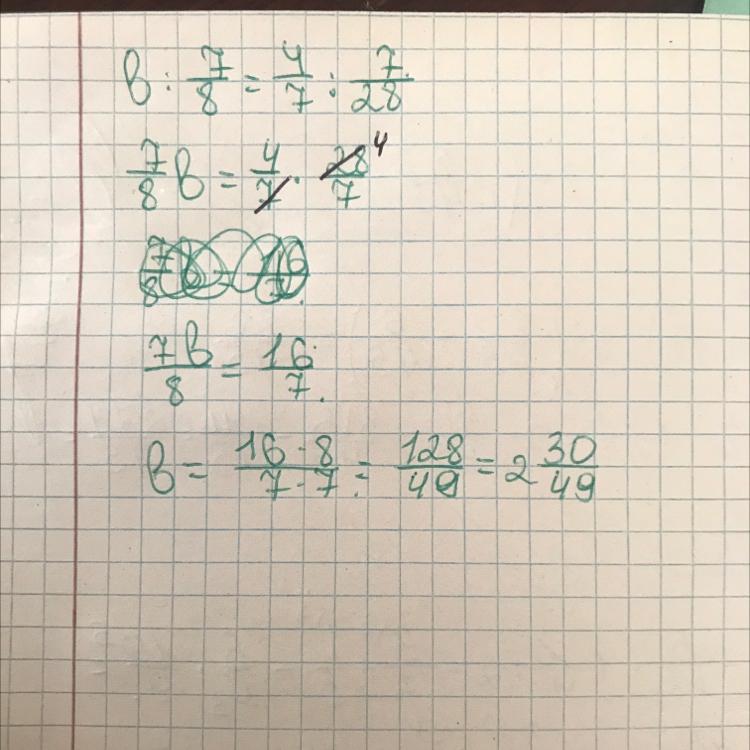 в : 7/8 = 4/7 : 7/28
7/8 в = 4/7 · 28/7 4
7в/8 = 16/7.
в = 16·8/7·7 = 128/49 = 2 30/49